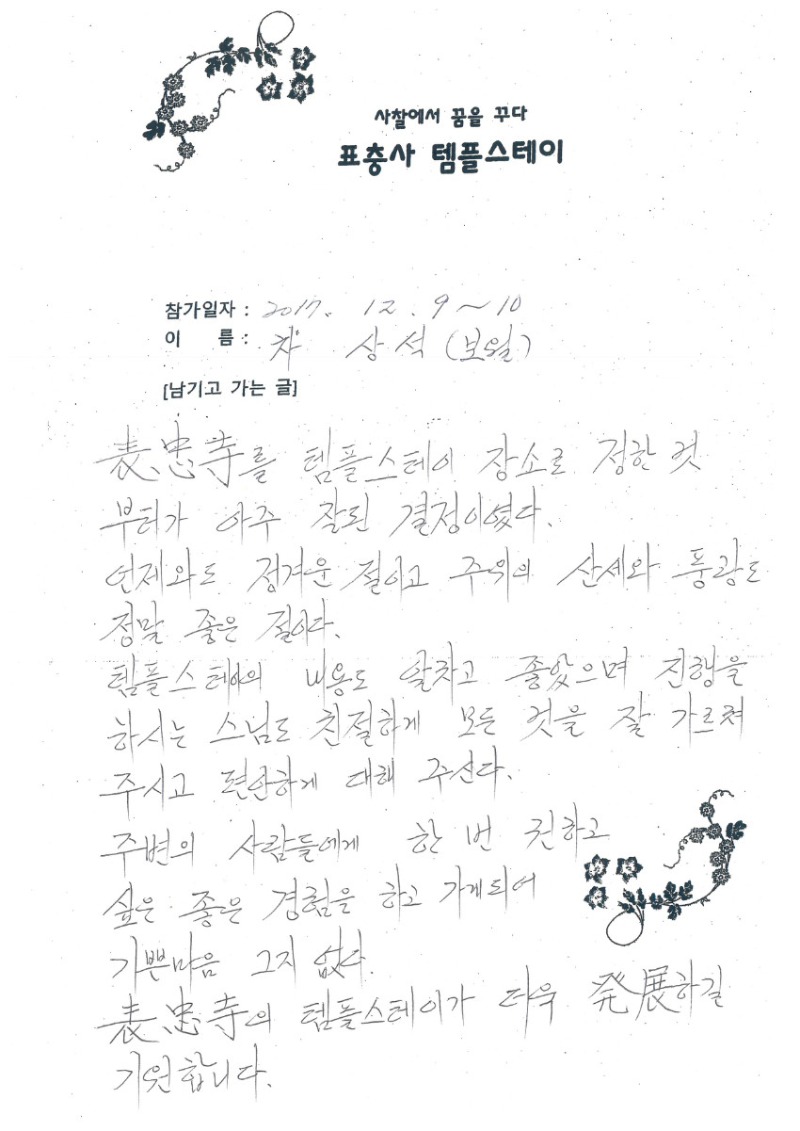 사찰에서 꿈을 꾸다
표충사 템플스테이
참가일자 : 2017. 12. 9 ~ 10
이 름 : 차 상석 (보월)
[남기고 가는 글]
表忠寺를 템플스테이 장소로 정한 것
부터가 아주 잘된 결정이였다.
언제와도 정겨운 절이고 주위의 산세와 풍광도
정말 좋은 절이다.
템플스테이의 내용도 알차고 좋았으며 진행을
하시는 스님도 친절하게 모든 것을 잘 가르쳐
주시고 편안하게 대해 주신다.
주변의 사람들에게 한 번 권하고
싶은 좋은 경험을 하고 가게되어
기쁜마음 그지 없다.
表忠寺의 템플스테이가 더욱 発展하길
기원합니다.